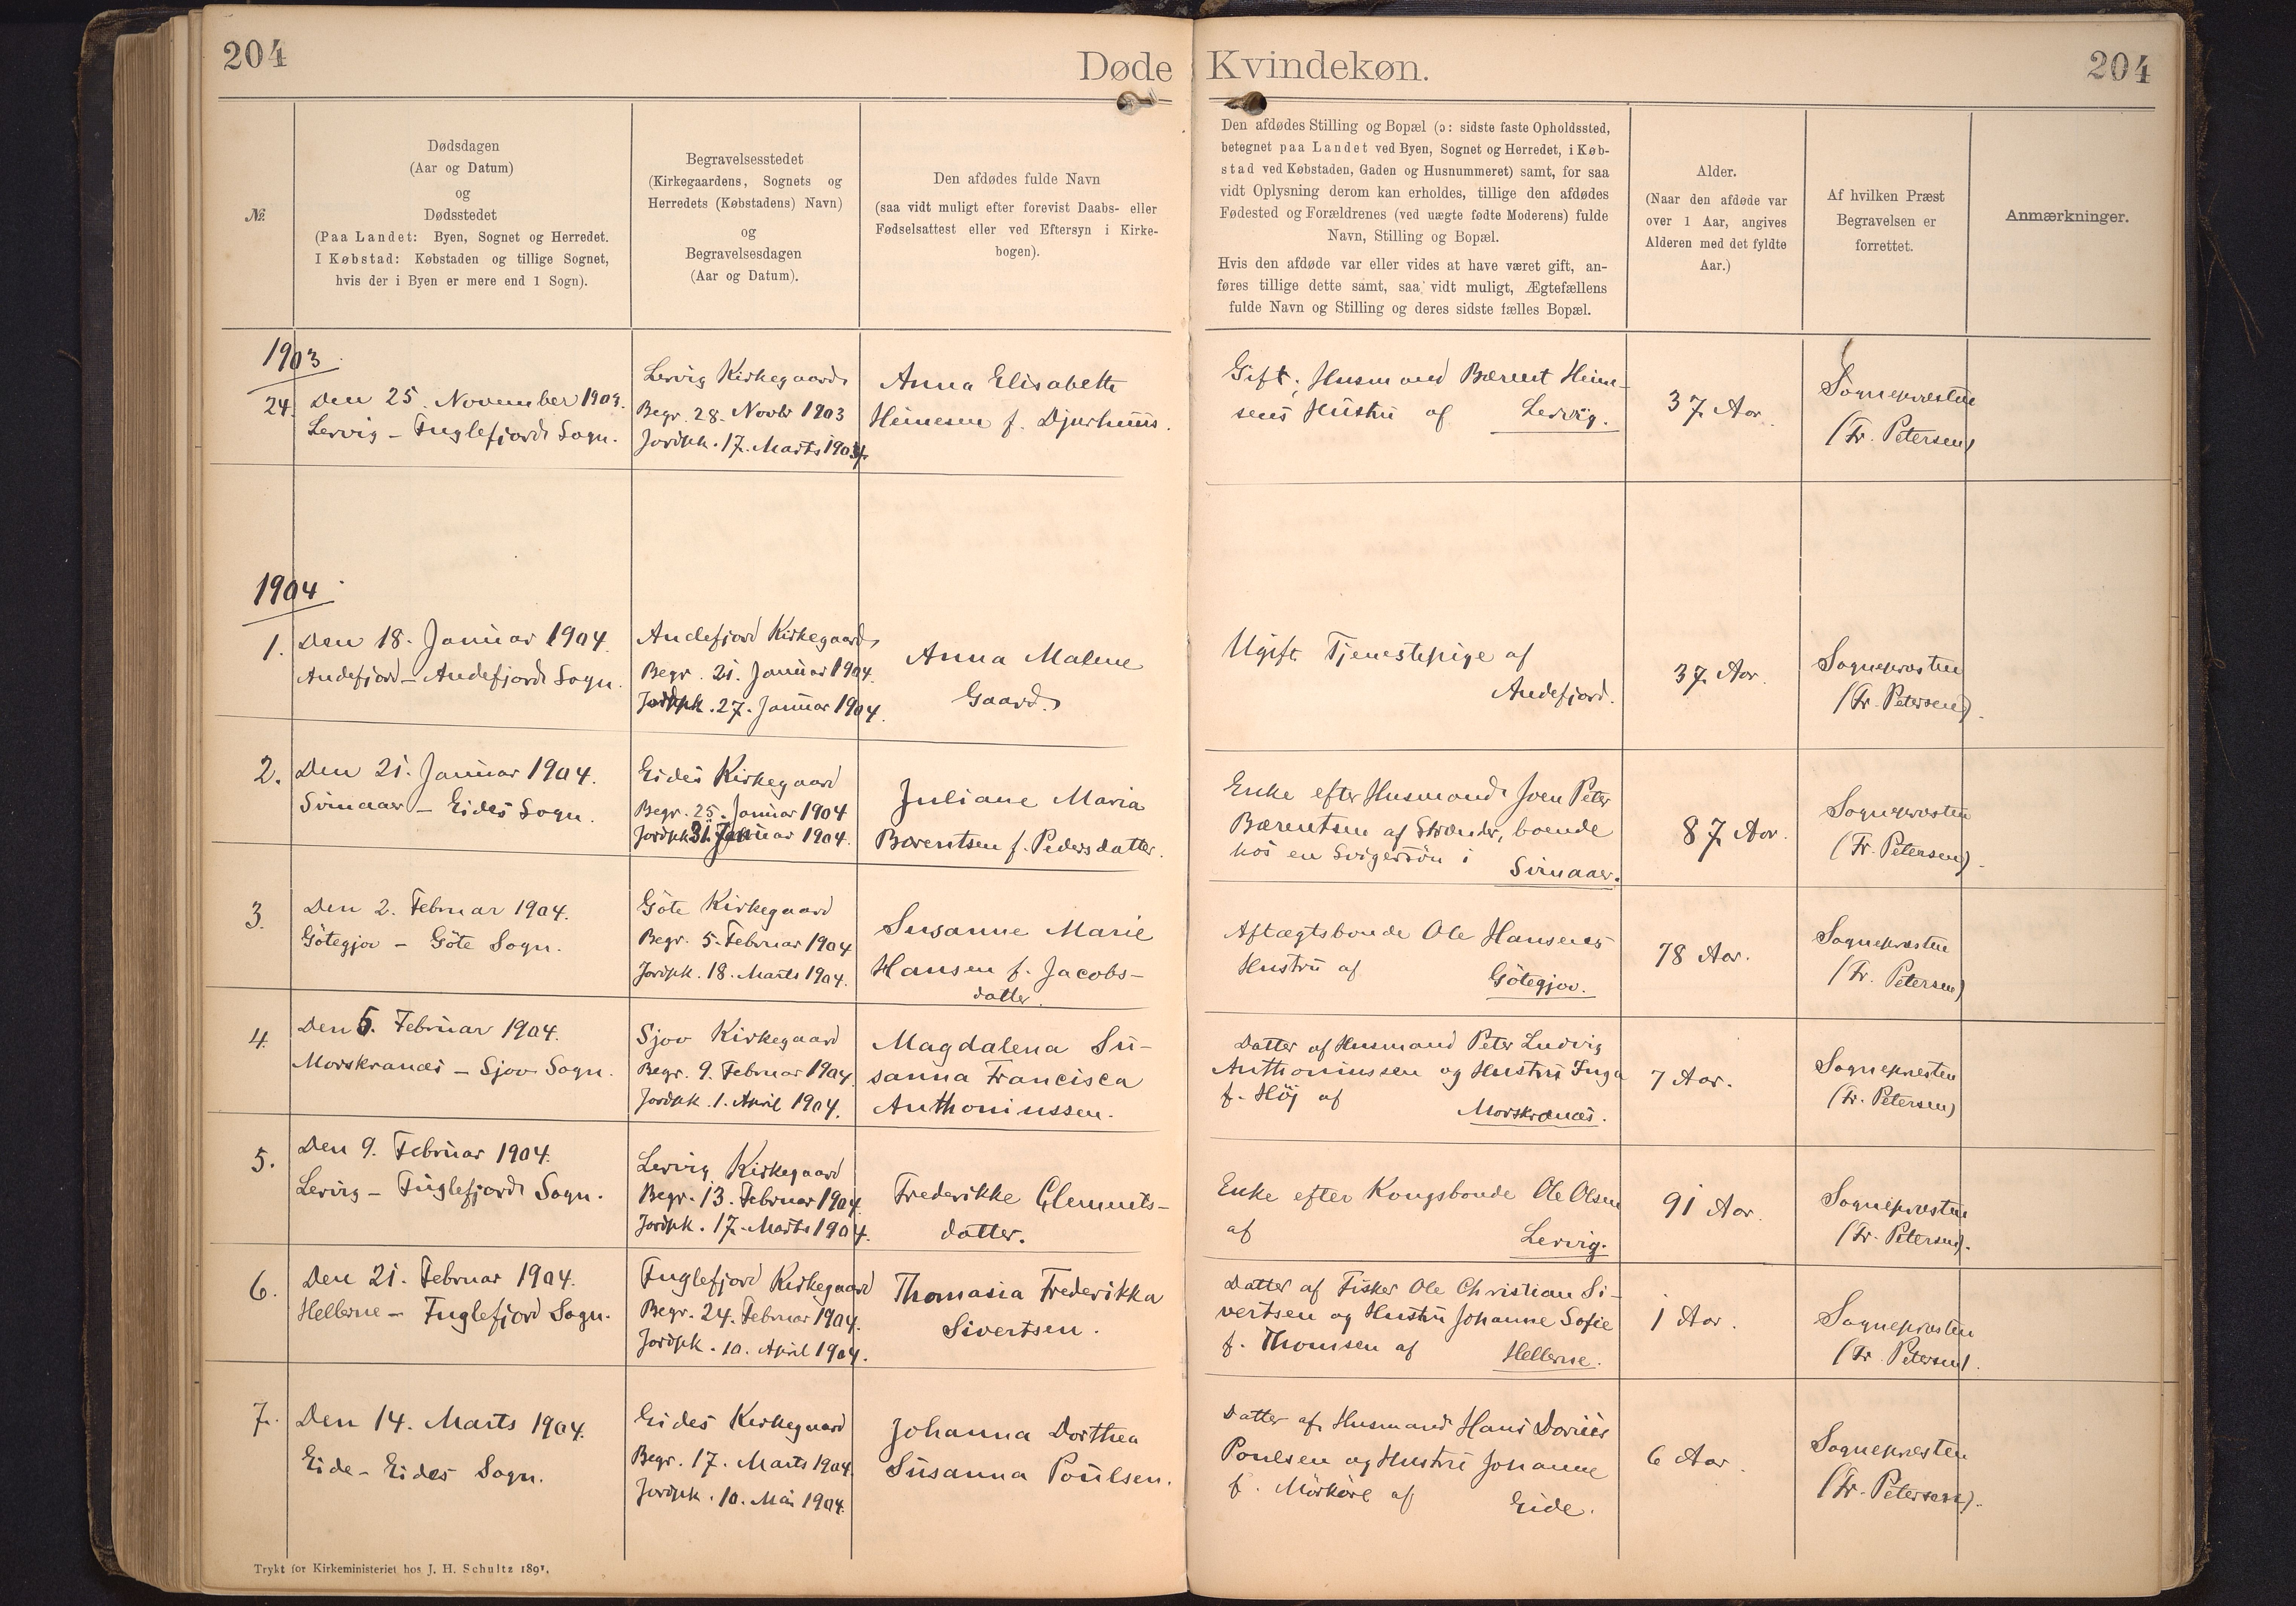 204
Døde
Kvindekøn.
204
№
Dødsdagen
(Aar og Datum)
og
Dødsstedet
(Paa Landet: Byen, Sognet og Herredet.
I Købstad: Købstaden og tillige Sognet,
hvis der i Byen er mere end 1 Sogn).
Begravelsesstedet
(Kirkegaardens, Sognets og
Herredets (Købstadens) Navn)
og
Begravelsesdagen
(Aar og Datum).
Den afdødes fulde Navn
(saa vidt muligt efter forevist Daabs- eller
Fødselsattest eller ved Eftersyn i Kirke-
bogen).
Den afdødes Stilling og Bopæl (ɔ: sidste faste Opholdssted,
betegnet paa Landet ved Byen, Sognet og Herredet, i Køb-
stad ved Købstaden, Gaden og Husnummeret) samt, for saa
vidt Oplysning derom kan erholdes, tillige den afdødes
Fødested og Forældrenes (ved uægte fødte Moderens) fulde
Navn, Stilling og Bopæl.
Hvis den afdøde var eller vides at have været gift, an-
føres tillige dette samt, saa vidt muligt, Ægtefællens
fulde Navn og Stilling og deres sidste fælles Bopæl.
Alder.
(Naar den afdøde var
over 1 Aar, angives
Alderen med det fyldte
Aar.)
Af hvilken Præst
Begravelsen er
forrettet.
Anmærkninger.
1903
24.
Den 25. November 1903.
Lervig – Fuglefjords Sogn.
Lervig Kirkegaard
Begr. 28. Novbr 1903
Jordpk. 17. Marts 1904
Anna Elisabeth
Heinesen f. Djurhuus.
Gift, Husmand Bærent Heine-
sens Hustru af Lervig.
37 Aar
Sognepræsten
(Fr. Petersen)
1904
1.
Den 18. Januar 1904.
Andefjord – Andefjords Sogn.
Andefjord Kirkegaard
Begr. 21. Januar 1904.
Jordpk. 27. Januar 1904.
Anna Malene
Gaard.
Ugift Tjenestepige af
Andefjord.
37 Aar.
Sognepræsten
(Fr. Petersen).
2.
Den 21. Januar 1904.
Svinaaer – Eides Sogn.
Eides Kirkegaard
Begr. 25. Januar 1904
Jordpk 31. Januar 1904.
Juliane Maria
Bærentsen f. Pedersdatter.
Enke efter Husmand Joen Peter
Bærentsen af Strænder, boende
hos en Svigersön i Svinaaer.
87 Aar.
Sognepræsten
(Fr. Petersen).
3.
Den 2. Februar 1904.
Götegjov – Göte Sogn.
Göte Kirkegaard
Begr. 5. Februar 1904
Jordpk. 18. Marts 1904.
Susanne Marie
Hansen f. Jacobs-
datter.
Aftægtsbonde Ole Hansens
Hustru af Götegjov.
78 Aar.
Sognepræsten
(Fr. Petersen)
4.
Den 5. Februar 1904.
Morskranæs – Sjov Sogn.
Sjov Kirkegaard
Begr. 9. Februar 1904.
Jordpk. 1. April 1904.
Magdalena Su-
sanna Francisca
Anthoniussen.
Datter af Husmand Peter Ludvig
Anthoniussen og Hustru Inga
f. Höj af Morskranæs.
7 Aar.
Sognepræsten
(Fr. Petersen)
5.
Den 9. Februar 1904.
Lervig – Fuglefjords Sogn.
Lervig Kirkegaard
Begr. 13. Februar 1904.
Jordpk. 17. Marts 1904.
Frederikke Clements-
datter.
Enke efter Kongsbonde Ole Olsen
af Lervig.
91 Aar.
Sognepræsten
(Fr. Petersen).
6.
Den 21. Februar 1904.
Hellerne – Fuglefjord Sogn.
Fuglefjord Kirkegaard
Begr. 24. Februar 1904.
Jordpk. 10. April 1904.
Thomasia Frederikka
Sivertsen.
Datter af Fisker Ole Christian Si-
vertsen og Hustru Johanne Sofie
f. Thomsen af Hellerne.
1 Aar.
Sognepræsten
(Fr. Petersen).
7.
Den 14. Marts 1904.
Eide – Eides Sogn.
Eides Kirkegaard
Begr. 17. Marts 1904.
Jordpk. 10. Mai 1904.
Johanna Dorthea
Susanna Poulsen.
Datter af Husmand Hans Dorius
Poulsen og Hustru Johanne
f. Mörköre af Eide.
6 Aar.
Sognepræsten
(Fr. Petersen).
Trykt for Kirkeministeriet hos J. H. Schultz 1891.